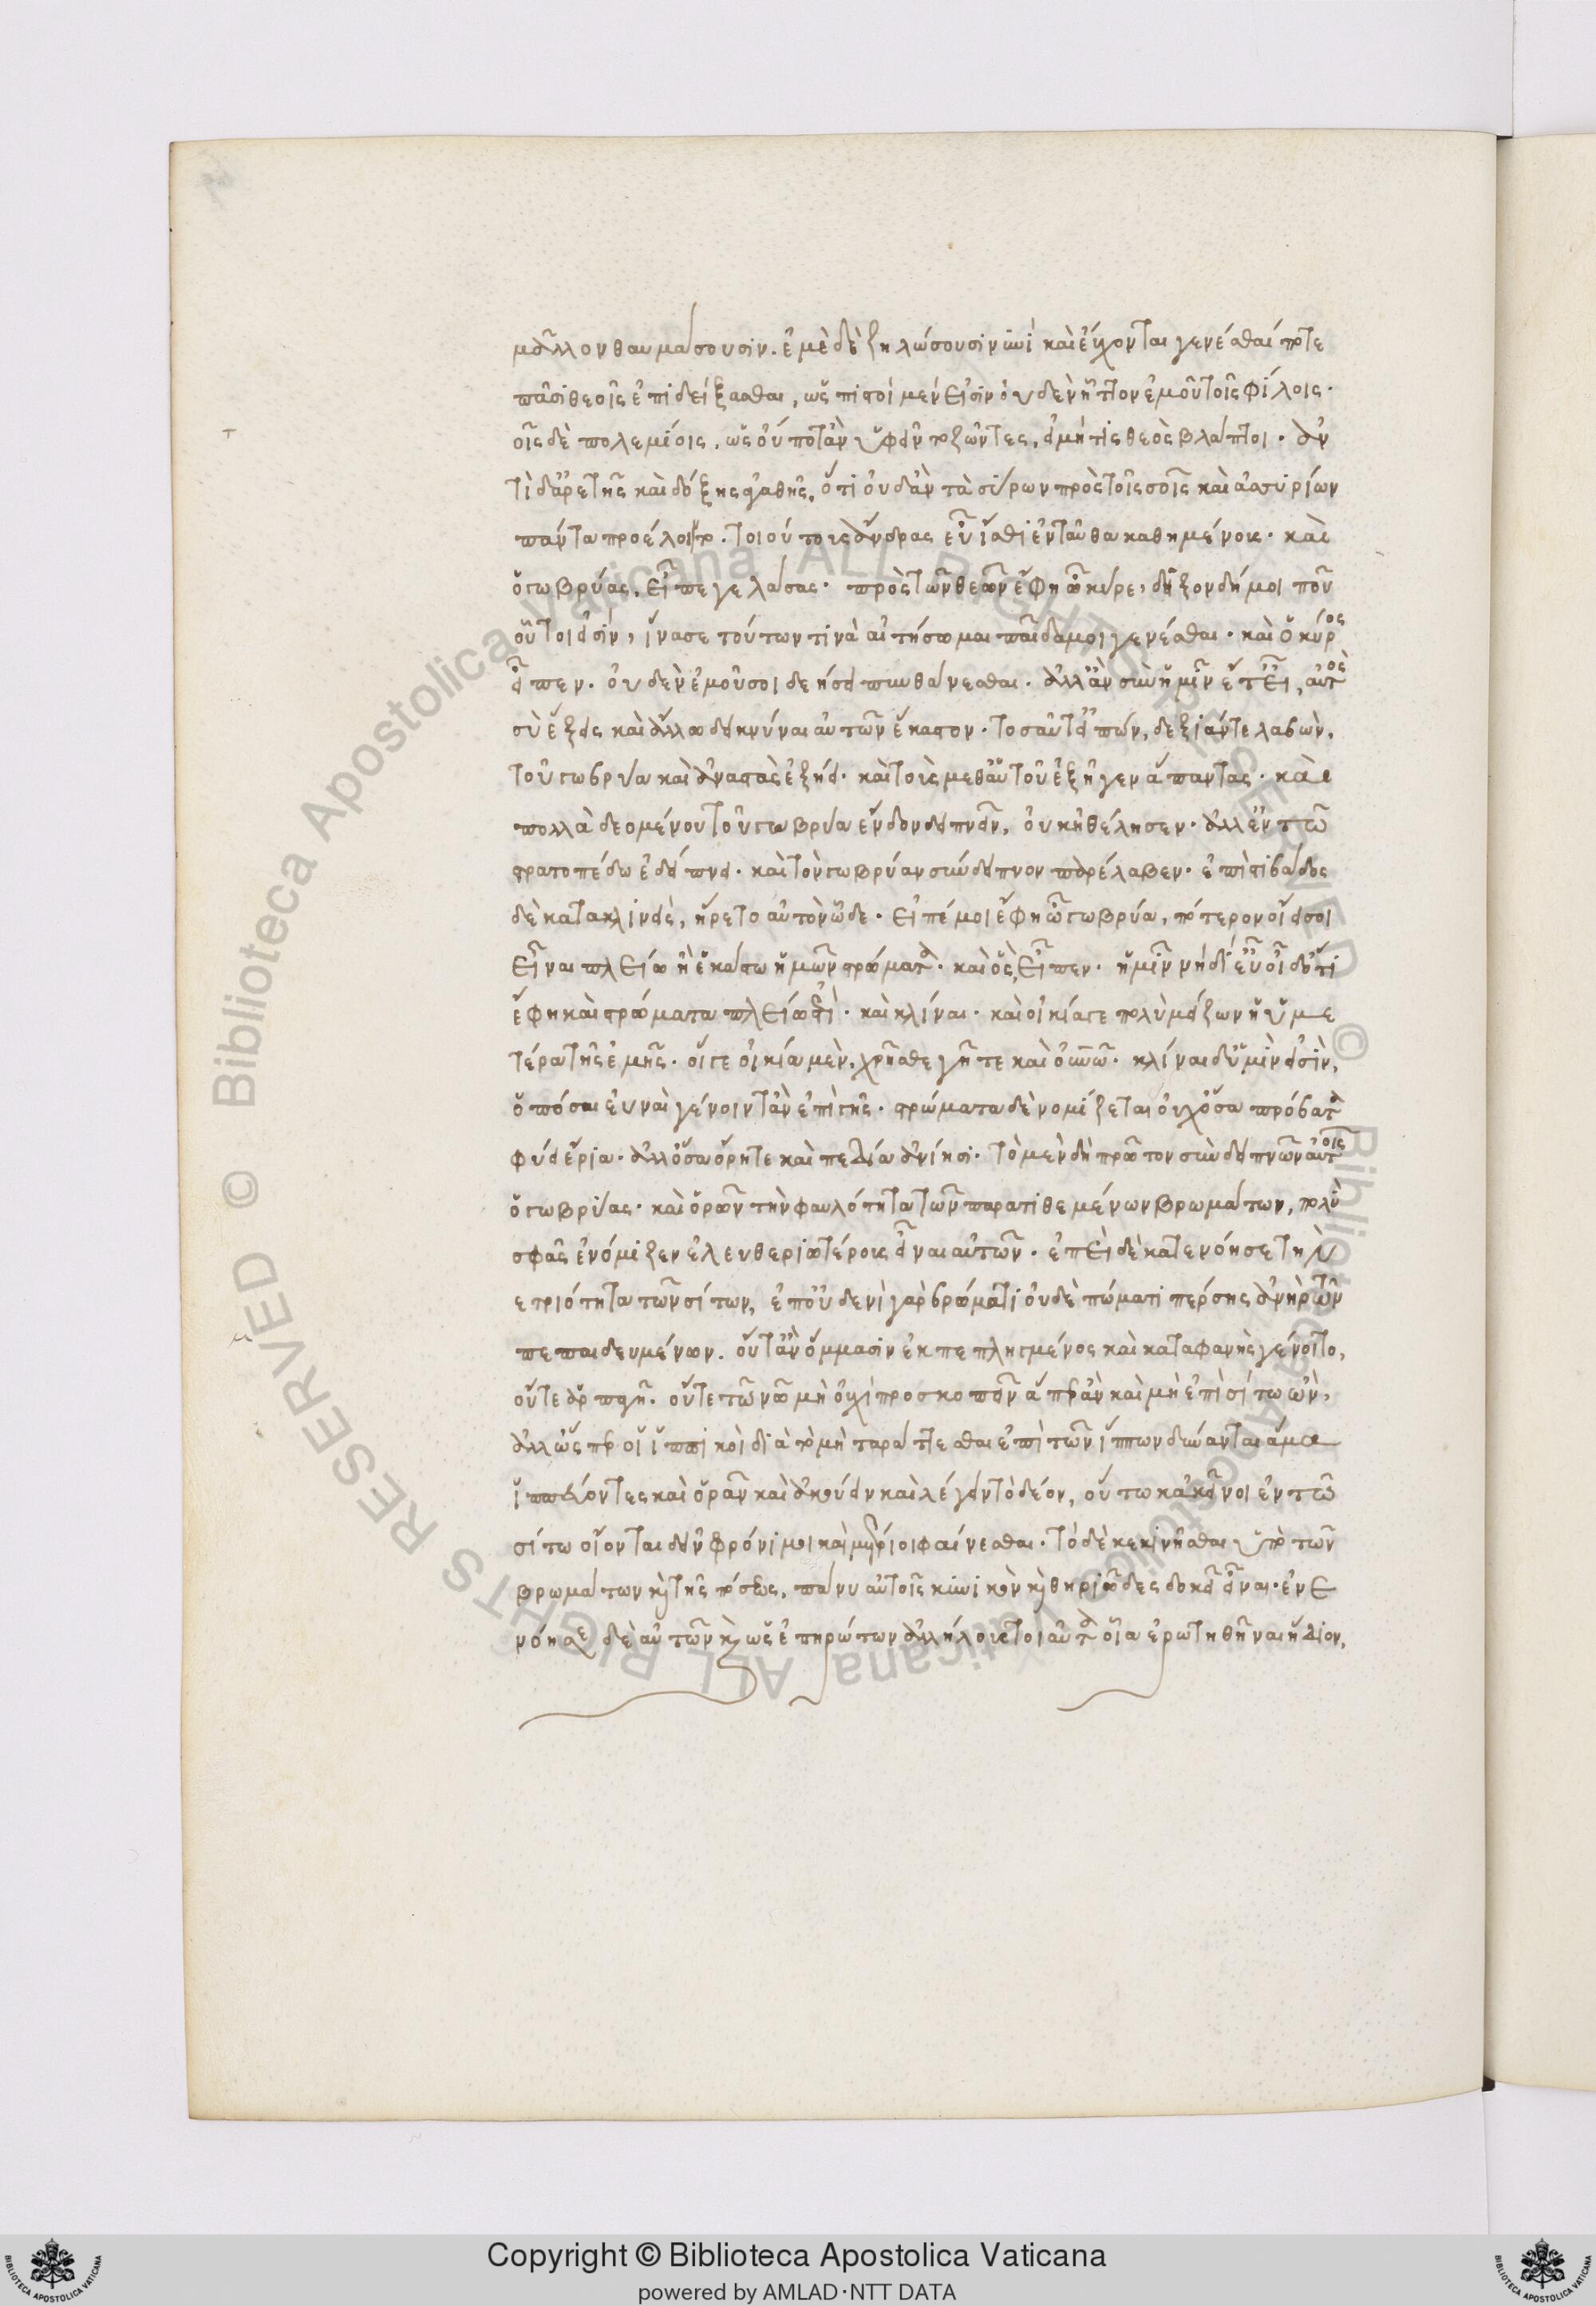 μᾶλλον θαυμάσουσιν. ἐμὲ δὲ ζηλώσουσιν νυνὶ καὶ εὔχονται γενέσθαι ποτε
πᾶσι θεοῖς ἐπιδείξασθαι, ὡς πιστοὶ μέν εἰσιν οὐδὲν ἧττον ἐμοῦ τοῖς φίλοις.
τοῖς δὲ πολεμίοις, ὡς οὔποτ' ἂν ὑφεῖντο ζῶντες, εἰ μή τις θεὸς βλάπτοι. ἀν
τὶ δ' ἀρετῆς καὶ δόξης ἀγαθῆς, ὅτι οὐδ' ἂν τὰ σύρων πρὸς τοῖς σοῖς καὶ ἀσσυρίων
πάντα προέλοιντο. τοιούτους ἄνδρας εὖ ἴσθι ἐνταῦθα καθημένους. καὶ
ὁ γωβρύας, εἶπε γελάσας. πρὸς τῶν θεῶν ἔφη ὦ κῦρε, δεῖξον δή μοι ποῦ
οὗτοί εἰσίν, ἵνα σε τούτων τινὰ αἰτήσωμαι παῖδά μοι γενέσθαι. καὶ ὁ κῦρος
εἶπεν. οὐδὲν ἐμοῦ σοι δεήσει πυνθάνεσθαι. ἀλλ' ἂν σὺν ἡμῖν ἕπῃ, αὐτὸς
σὺ ἕξεις καὶ ἄλλῳ δεικνύναι αὐτῶν ἕκαστον. τοσαῦτ' εἰπών, δεξιάν τε λαβὼν,
τοῦ γωβρύα καὶ ἀναστὰς ἐξῄει. καὶ τοὺς μεθ' αὑτοῦ ἐξῆγεν ἅπαντας. καὶ
πολλὰ δεομένου τοῦ γωβρύα ἔνδον δειπνεῖν, οὐκ ἠθέλησεν. ἀλλ' ἐν τῶ
στρατοπέδω ἐδείπνει. καὶ τὸν γωβρύαν σύνδειπνον παρέλαβεν. ἐπὶ στιβάδος
δὲ κατακλινεὶς, ἤρετο αὐτὸν ὧδε. εἰπέ μοι ἔφη ὦ γωβρύα, πότερον οἴει σοι
εἶναι πλείω ἢ ἑκάστω ἡμῶν στρώματα. καὶ ὃς, εἶπεν. ὑμῖν νὴ δί' εὖ οἶδ' ὅτι
ἔφη καὶ στρώματα πλείω ἐστὶ. καὶ κλῖναι. καὶ οἰκία γε πολὺ μείζων ἡ ὑμε
τέρα τῆς ἐμῆς. οἵ γε οἰκία μὲν, χρῆσθε γῆ τε καὶ οὐρανῶ. κλῖναι δ' ὑμῖν εἰσὶν,
ὁπόσαι εὐναὶ γένοιντ' ἂν ἐπὶ γῆς. στρώματα δὲ νομίζεται οὐχ ὅσα πρόβατα
φύει ἔρια. ἀλλ' ὅσα ὄρη τε καὶ πεδία ἀνίησι. τὸ μὲν δὴ πρῶτον συνδειπνῶν αὐτοῖς
ὁ γωβρύας. καὶ ὁρῶν τὴν φαυλότητα τῶν παρατιθεμένων βρωμάτων, πολὺ
σφᾶς ἐνόμιζεν ἐλευθεριωτέρους εἶναι αὐτῶν. ἐπεὶ δὲ κατενόησε τὴν
ετριότητα τῶν σίτων, ἐπ' οὐδενὶ γὰρ βρώματι οὐδὲ πώματι πέρσης ἀνὴρ τῶν
πεπαιδευμένων. οὔτ' ἂν ὄμμασιν ἐκπεπληγμένος καὶ καταφανὴς γένοιτο,
οὔτε ἁρπαγῆ. οὔτε τῶ νῶ μὴ οὐχὶ προσκοπεῖν ἅπερ ἂν καὶ μὴ ἐπὶ σίτω ὢν,
ἀλλ' ὥσπερ οἱ ἱππικοὶ διὰ τὸ μὴ ταράττεσθαι ἐπὶ τῶν ἵππων δύνανται ἅμα
ἱππεύοντες καὶ ὁρᾶν καὶ ἀκούειν καὶ λέγειν τὸ δέον, οὕτω κἀκεῖνοι ἐν τῶ
σίτω οἴονται δεῖν φρόνιμοι καὶ μέτριοι φαίνεσθαι. τὸ δὲ κεκινῆσθαι ὑπὸ τῶν
βρωμάτων καὶ τῆς πόσεως, πάνυ αὐτοῖς κυνικὸν καὶ θηριῶδες δοκεῖ εἶναι. ἐνε
νόησε δὲ αὐτῶν καὶ ὡς ἐπηρώτων ἀλλήλους τοιαῦτα οἷα ἐρωτηθῆναι ἥδιον,
Copyright © Biblioteca Apostolica Vaticana
powered by AMLAD·NTT DATA